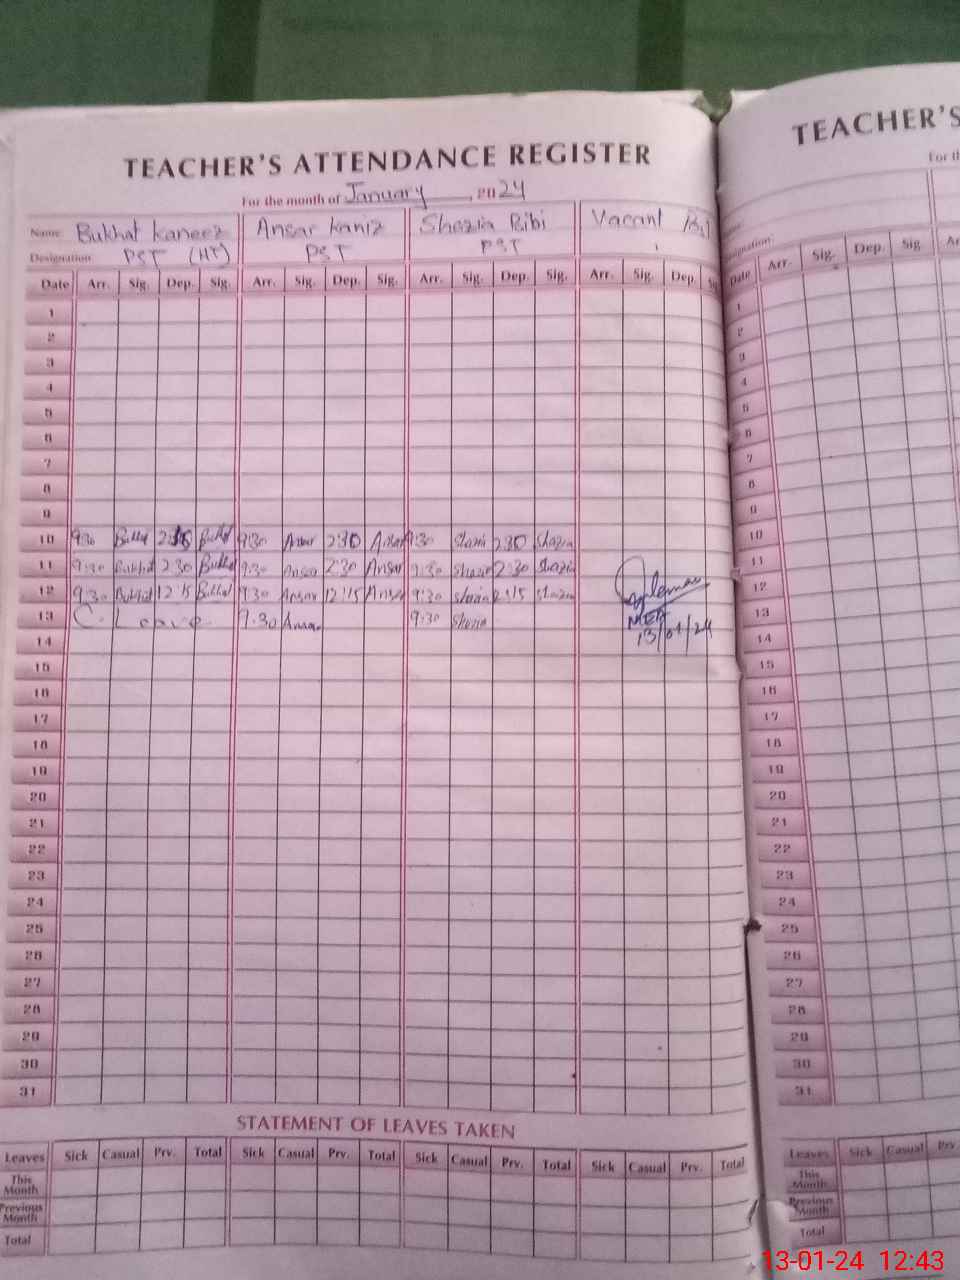 TEACHER'S ATTENDANCE REGISTER
For the month of January, 2024
Name Bukhat Kaneez Ansar Kaniz Shazia Bibi Vacant
Designation PST (HT) PST PST
Date Arr. Sig. Dep. Sig. Arr. Sig. Dep. Sig. Arr. Sig. Dep. Sig. Arr. Sig. Dep.
1
2
3
4
5
6
7
8
9
10 9:30 Bukhat Bukhat 9:30 Ansar 2:30 Ansar 9:30 Shazia 2:30 Shazia
11 9:30 Bukhat 2:30 Bukhat 9:30 Ansar 2:30 Ansar 9:30 Shazia 2:30 Shazia
12 9:30 Bukhat 12:15 Bukhat 9:30 Ansar 12:15 Ansar 9:30 Shazia 2:15 Shazia
13 C. Leave 9:30 Ansar 9:30 Shazia MEA
13/01/24
14
15
16
17
18
19
20
21
22
23
24
25
26
27
28
29
30
31
STATEMENT OF LEAVES TAKEN
Leaves Sick Casual Prv. Total Sick Casual Prv. Total Sick Casual Prv. Total Sick Casual Prv. Total
This Month
Previous Month
Total
TEACHER'S
For th
Date Arr. Sig. Dep. Sig.
1
2
3
4
5
6
7
8
9
10
11
12
13
14
15
16
17
18
19
20
21
22
23
24
25
26
27
28
29
30
31
Leaves Sick Casual Prv.
This Month
Previous Month
Total
13-01-24 12:43